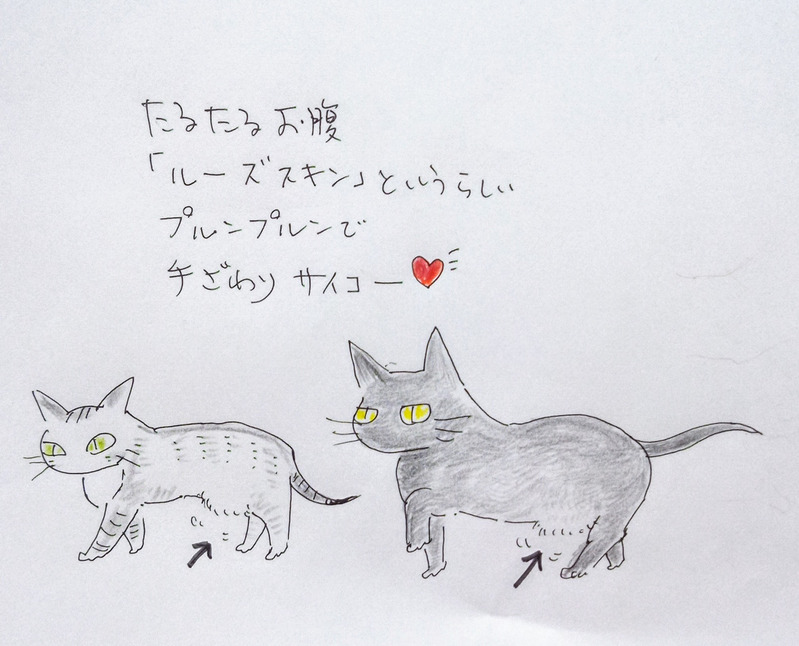 たるたるお腹
「ルーズスキン」というらしい
プルンプルンで
手ざわりサイコー